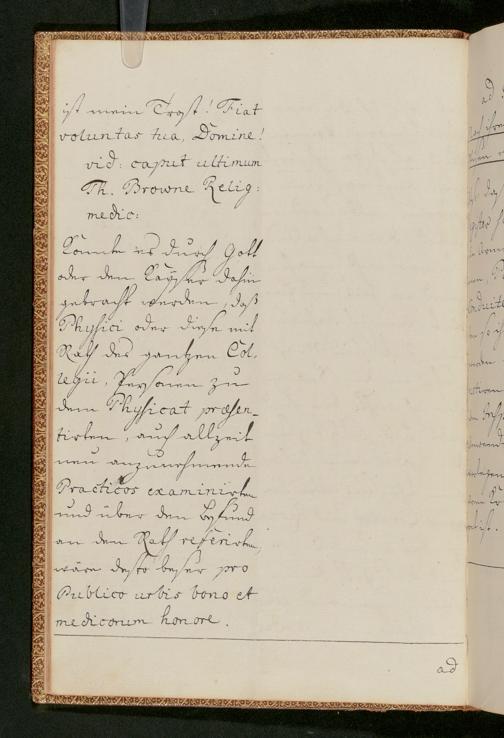 ist mein Trost! Fiat
voluntas tua, Domine!
vid: caput ultimum
Th. Browne Relig:
medic:
Könnte es durch Gott
oder den Käyser dahin
gebracht werden, daß
Physici oder diese mit
Rath des gantzen Col-
legii, Personen zu
dem Physicat præsen-
tirten, auch allzeit
neu anzunehmende
Practicos examinirten
und über den Befund
an den Rath referirten,
wäre desto beßer pro
Publico urbis bono et
medicorum honore.
ad